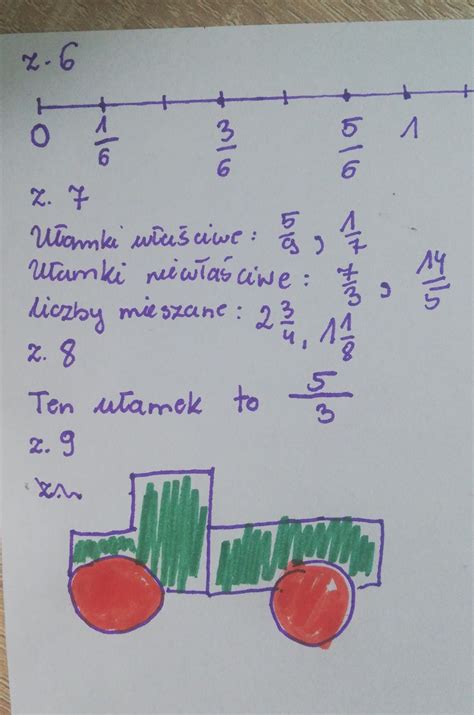 z. 6
0 1/6 3/6 5/6 1
z. 7
Ułamki właściwe: 5/9, 1/7
Ułamki niewłaściwe: 7/3, 14/5
liczby mieszane: 2 3/4, 1 1/8
z. 8
Ten ułamek to 5/3
z. 9